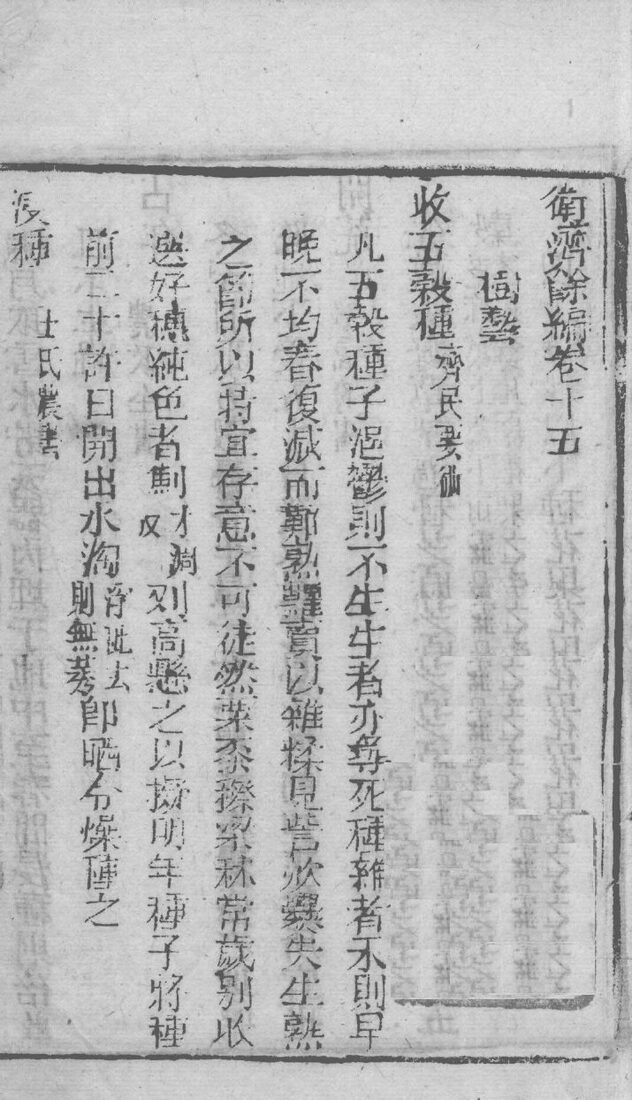 衛濟餘編卷十五
樹藝
收五穀種 齊民要術
凡五穀種子浥鬱則不生生者亦尋死種雜者禾則早
晚不均舂復減而難熟糶賣以雜糅見訾炊爨失生熟
之節所以特宜存意不可徒然粟黍穄梁秫常歲別收
選好穗純色者劁才凋反刈高懸之以擬明年種子將種
前二十許日開出水淘浮秕去則無莠即晒令燥種之
浸種 士氏農書